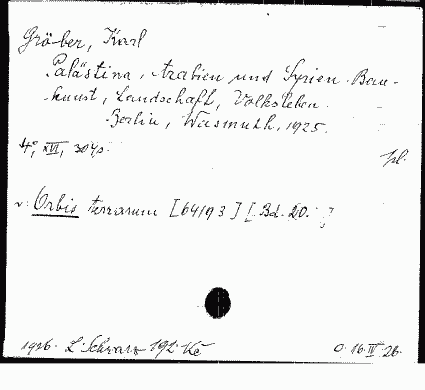 Gröber, Karl
Palästina, Arabien und Syrien. Bau-
kunst, Landschaft, Volksleben.
Berlin, Wasmuth, 1925.
4°, XVI, 304 p.
pl.
v. Orbis terrarum [64193] [Bd. 20.]
1926. L. Schwarz 192 Kč
O. 16. IV. 26.